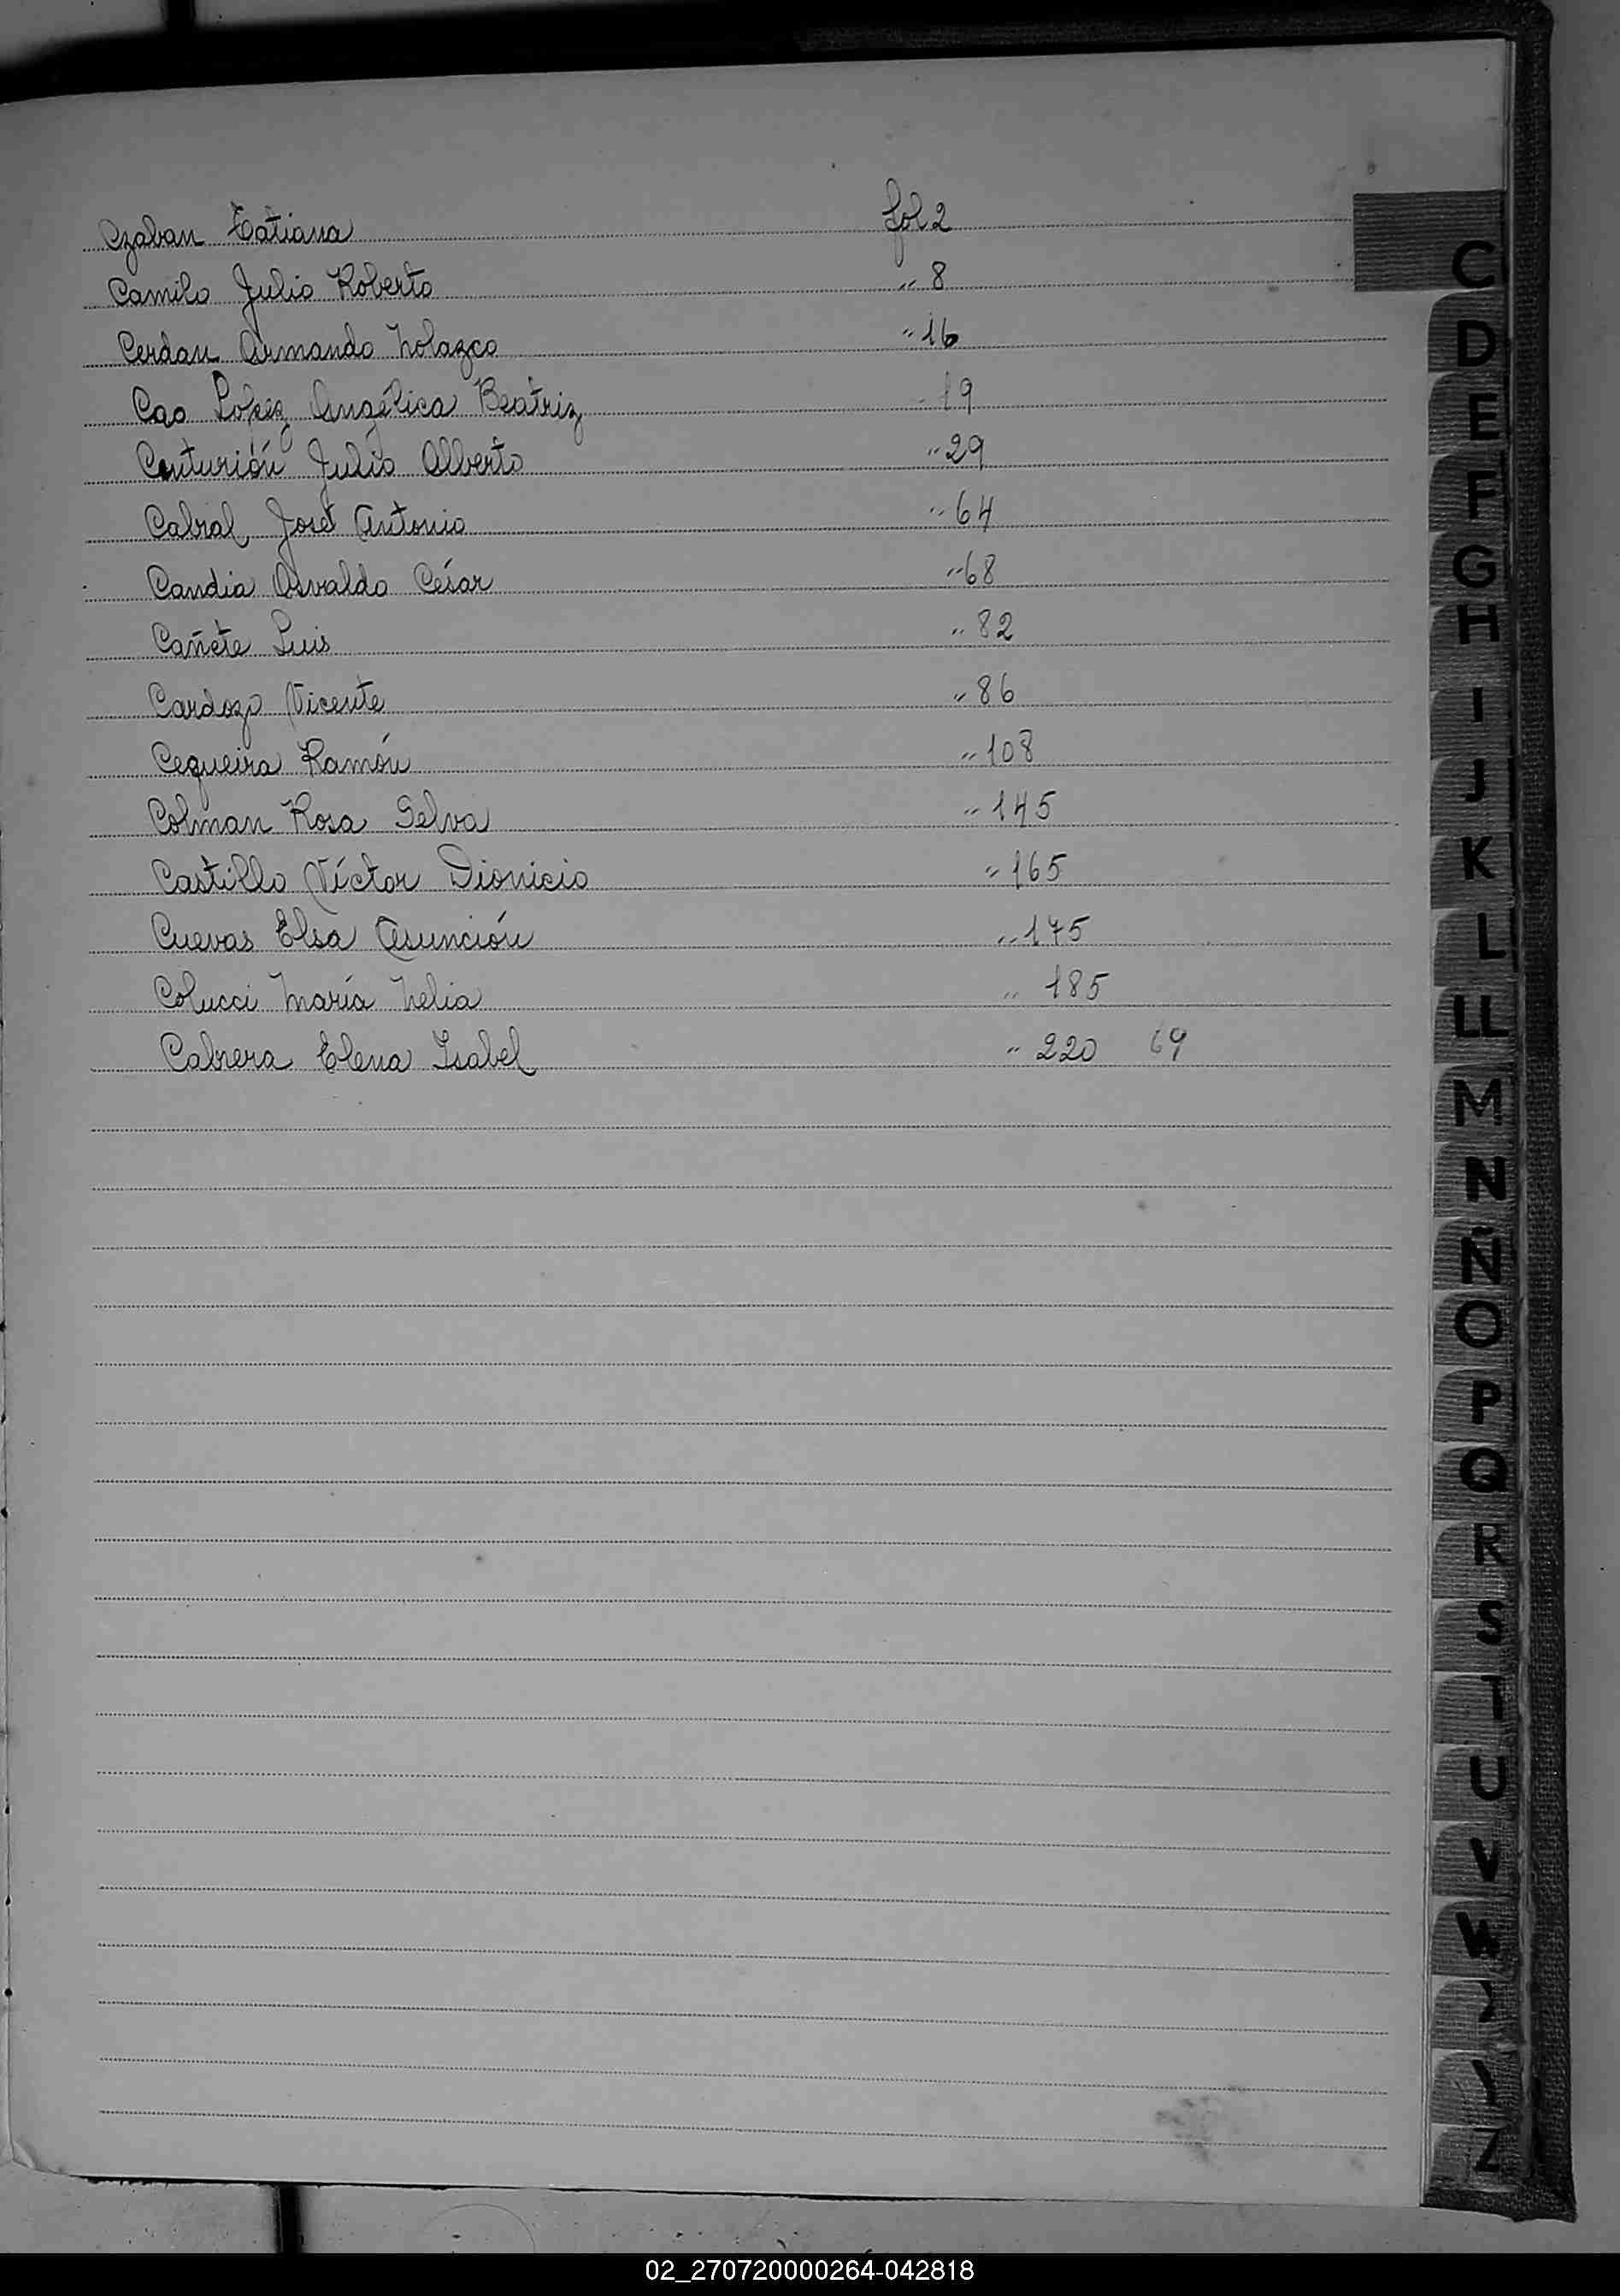 Czaban Tatiana fol 2
Camilo Julio Roberto " 8
Cerdan Armando Nolazco " 16
Cao López Angélica Beatriz " 19
Centurión Julio Alberto " 29
Cabral José Antonio " 64
Candia Osvaldo César " 68
Cañete Luis " 82
Cardozo Vicente " 86
Cequeira Ramón " 108
Colman Rosa Selva " 145
Castillo Víctor Dionicio " 165
Cuevas Elsa Asunción " 175
Colucci María Nelia " 185
Cabrera Elena Isabel " 220 69
C
D
E
F
G
H
I
J
K
L
LL
M
N
Ñ
O
P
Q
R
S
T
U
V
W
Z
02_270720000264-042818